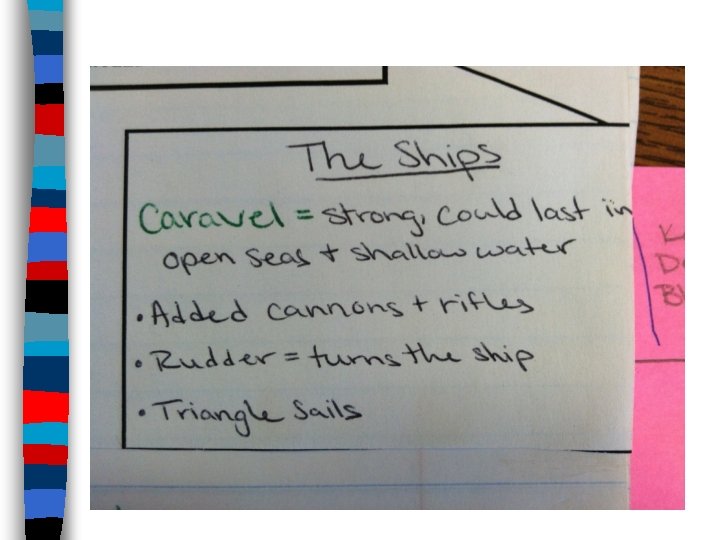 The Ships
Caravel = strong, could last in
open seas + shallow water
• Added cannons + rifles
• Rudder = turns the ship
• Triangle Sails